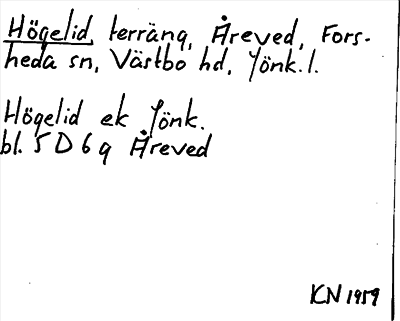 Högelid, terräng, Åreved, Fors-
heda sn, Västbo hd, Jönk. l.
Högelid ek Jönk.
bl. 5 D 6 g Åreved
KN 1959